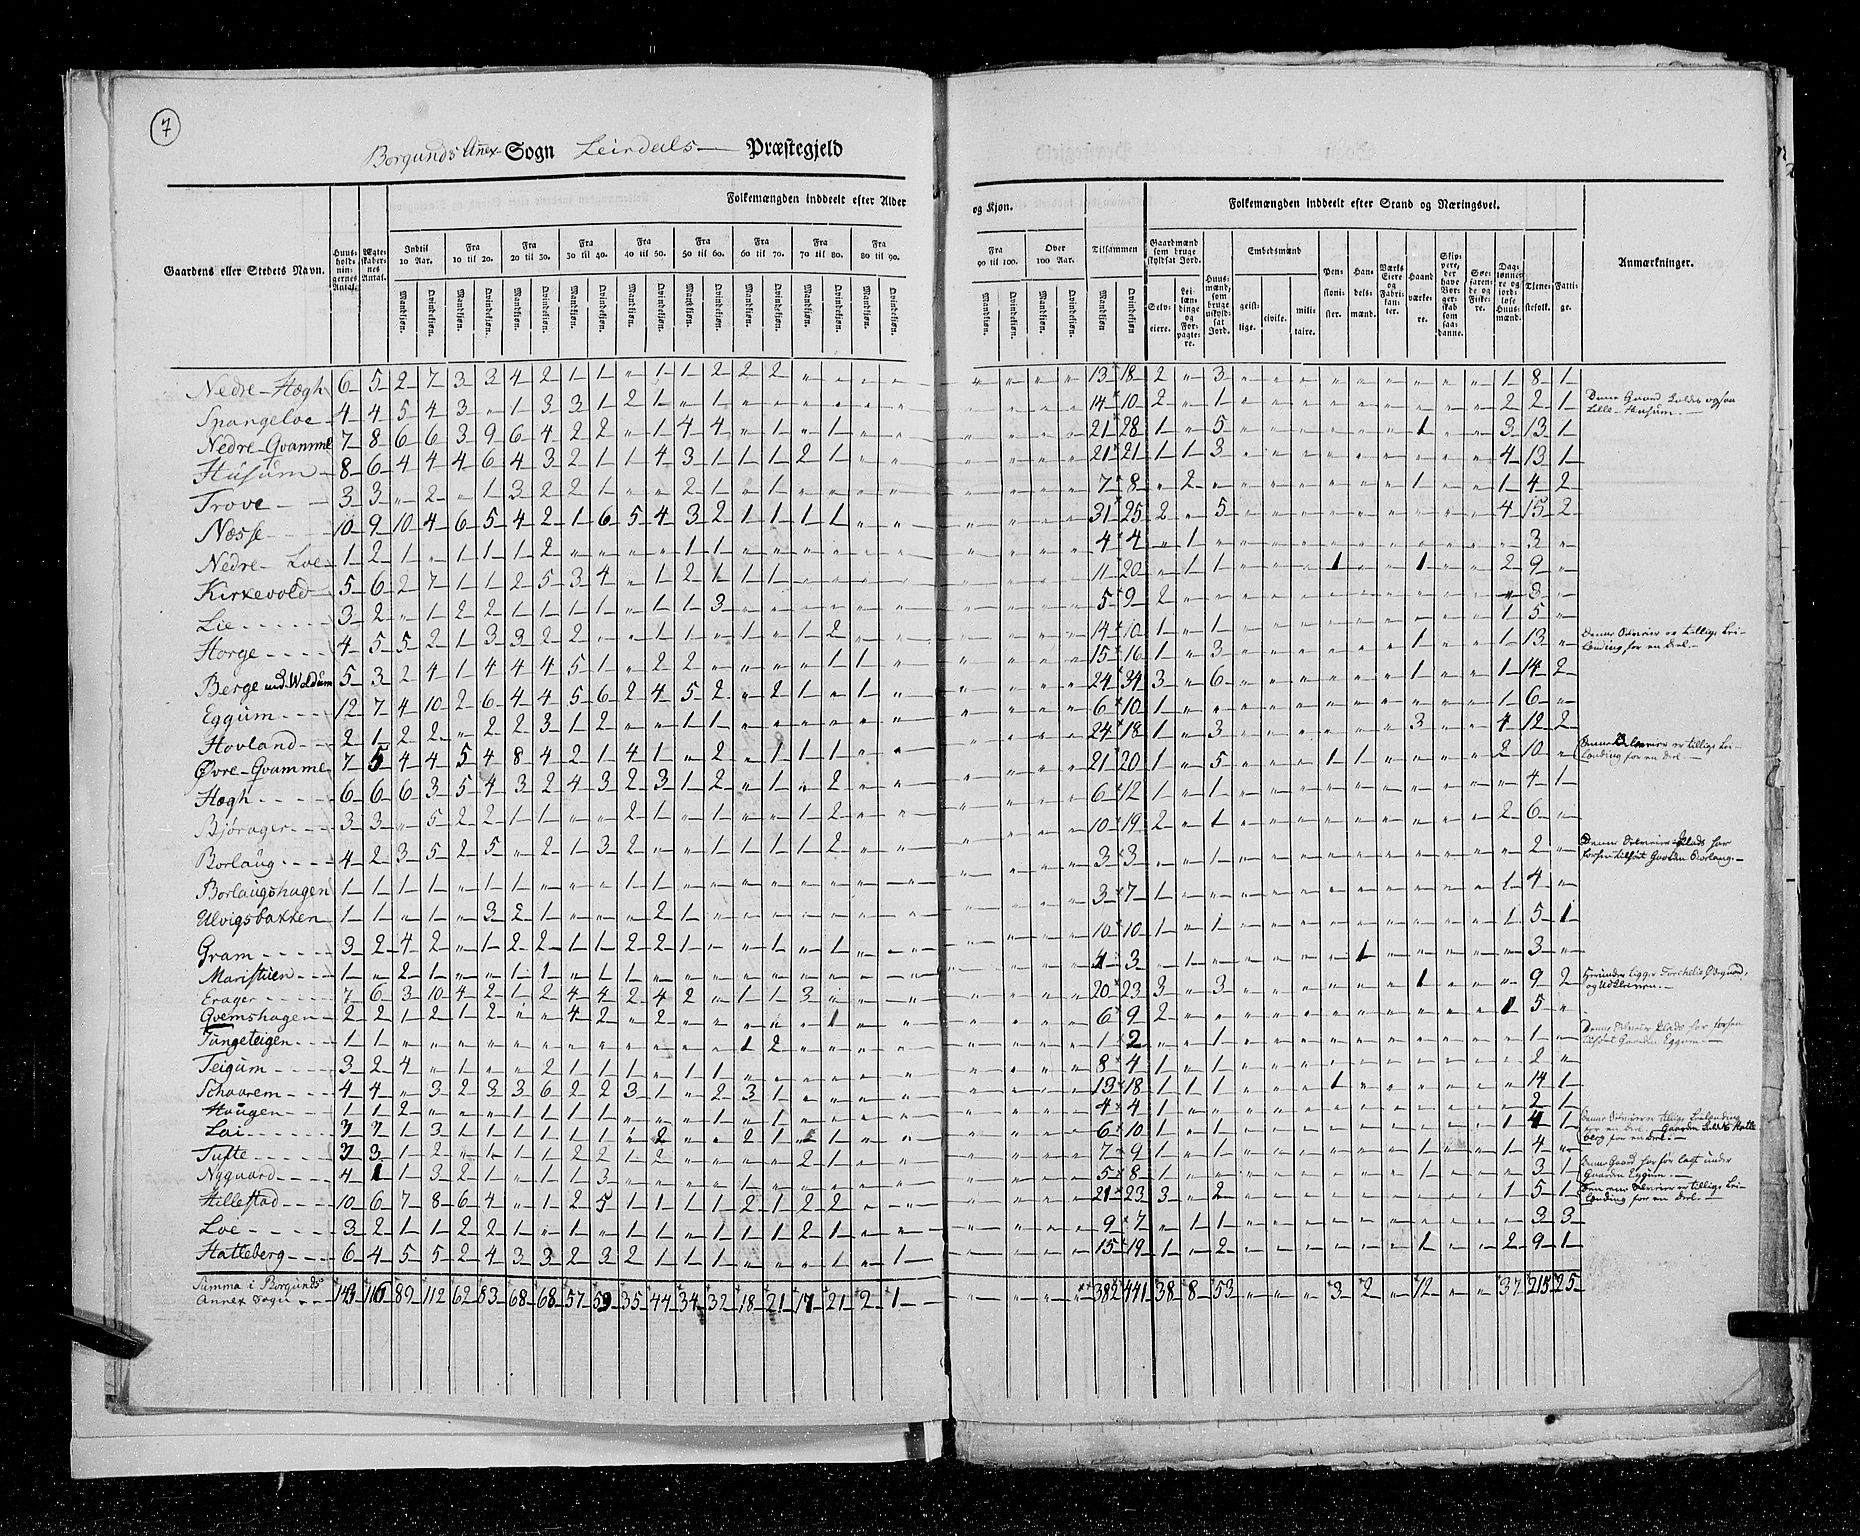 7
Borgunds Anex Sogn Leirdals Præstegjeld
Folkemængden inddeelt efter Alder og Kjøn.
Folkemængden inddeelt efter Stand og Næringsvei.
Gaardens eller Stedets Navn.
Huus-holdningernes Antal.
Ægteskabernes Antal.
Indtil 10 Aar.
Fra 10 til 20.
Fra 20 til 30.
Fra 30 til 40.
Fra 40 til 50.
Fra 50 til 60.
Fra 60 til 70.
Fra 70 til 80.
Fra 80 til 90.
Fra 90 til 100.
Over 100 Aar.
Tilsammen
Mandkjøn. Qvindekjøn.
Gaardmænd som bruge skyldsat Jord.
Selveiere.
Leilændinge og Forpagtere.
Huusmænd, som bruge uskyldsat Jord.
Embedsmænd
geistlige. civile. militaire.
Pensionister.
Handelsmænd.
Værks Eiere og Fabrikanter.
Haandværkere.
Skippere, der have Borgerskab som saadanne.
Søefarende og Fiskere.
Daglønnere og jordløse Huusmænd.
Tjenestefolk.
Fattige.
Anmærkninger.
Nedre-Høegh 6 5 2 7 3 3 4 2 1 1 „ 1 1 2 2 2 13 18 2 „ 3 1 8 1
Spangeloe 4 4 5 4 3 „ 1 3 3 1 2 1 „ 1 14 10 2 „ 1 2 2 1 Denne Gaard kaldes ogsaa Lille-Husum.
Nedre-Qvamme 7 8 6 6 3 9 6 4 2 2 „ 1 4 4 „ 1 „ 1 21 28 1 „ 5 1 3 13 1
Husum 8 6 4 4 4 6 4 3 2 1 1 4 3 1 1 1 2 1 21 21 1 1 3 4 13 1
Trove 3 3 „ 2 „ 1 3 2 2 1 „ „ 2 1 „ 1 7 8 „ 2 1 1 4 2
Næsse 10 9 10 4 6 5 4 2 1 6 5 4 3 2 1 1 1 1 31 25 2 „ 5 4 15 2
Nedre-Loe 1 2 1 „ 1 1 1 2 „ „ „ „ 1 1 4 4 „ 1 3
Kirkevold 5 6 2 7 1 1 2 5 3 4 „ 1 2 1 1 1 11 20 „ 1 1 1 1 2 9
Lie 3 2 „ 1 2 2 1 1 1 1 „ 1 1 3 5 9 2 3
Horge 4 5 5 2 1 3 3 2 2 „ „ 1 1 „ 1 „ 1 2 14 10 1 „ 1 1 5
Berge med Woldum 5 3 2 4 1 4 4 4 5 1 „ 2 2 „ „ „ 1 1 15 16 1 „ 3 1 1 13 Denne Selveier er tillige Leilænding for en Deel.
Eggum 12 7 4 10 2 6 4 4 5 6 2 4 5 2 „ 2 1 „ 1 24 34 3 „ 6 1 1 14 2
Hovland 2 1 2 2 „ 2 2 3 1 2 „ „ 1 1 6 10 1 6
Øvre-Qvamme 7 5 4 4 5 4 8 4 2 1 4 1 „ 2 „ 1 1 1 24 18 1 „ 3 3 4 12 2
Høegh 6 6 6 3 5 4 3 2 4 3 2 3 1 2 „ 1 „ 2 21 20 1 „ 5 1 1 2 10 Denne Selveier er tillige Leilænding for en Deel.
Bjørager 3 3 „ 5 2 2 1 1 „ „ 2 1 „ 1 „ „ 1 2 6 12 1 „ 1 4 1
Borlaug 4 2 3 5 2 5 „ 2 1 3 2 „ „ 1 1 1 1 2 10 19 2 „ 1 2 6
Borlaugshagen 1 1 1 1 1 1 „ „ „ „ 1 1 3 3 2 Denne Selveier Plads har forhen tilhørt Gaarden Borlaug.
Ulvigsbakken 1 1 „ 1 „ 3 2 1 „ „ „ 2 1 3 7 1 1 4
Gram 3 2 4 2 „ 1 2 2 1 1 2 2 1 „ „ 1 „ 1 10 10 1 „ 1 1 5 1
Maristuen 1 „ 2 1 „ „ 1 1 „ 1 1 4 3 „ 1 1 3
Erager 7 6 3 10 4 2 1 2 4 4 2 4 2 „ 1 1 3 20 23 3 „ 3 1 „ 9 2 Herunder ligger Torchelis Ødegaard, og Udkleiven.
Qvemshagen 2 2 1 2 1 2 „ „ 4 2 „ 2 „ „ „ „ „ 1 6 9 2 1 5
Tungeteigen 1 1 1 2 1 2 „ „ 1 1 Denne Selveier Plads har forhen tilhørt Gaarden Eggum.
Teigum 3 2 4 „ 1 „ „ 2 1 1 1 „ 1 1 8 4 1 2
Schaarem 4 4 „ 3 2 3 3 6 2 2 3 1 „ 2 3 1 13 18 1 1 1 1 14 1
Haugen 1 1 2 „ „ 1 1 1 1 1 4 4 1 2 1
Loi 3 3 1 3 1 1 1 1 1 1 „ 2 „ „ 2 1 „ 1 6 10 1 „ 1 1 4 1
Tufte 3 3 1 2 „ 1 1 1 2 2 1 2 „ „ „ „ 2 1 7 9 1 1 1 4
Nygaard 4 1 1 3 2 1 „ 1 1 3 „ „ „ „ 1 5 8 1 1 3 1
Hillestad 10 6 7 8 6 4 „ 1 2 5 1 1 1 1 2 1 2 2 21 23 3 „ 2 1 5 1
Loe 3 2 1 1 2 2 1 „ 1 „ 1 1 1 1 1 1 2 1 9 7 „ 1 1 3 3
Hatteberg 6 4 5 5 2 4 3 3 2 3 2 1 1 1 „ „ „ 1 „ 1 15 19 1 „ 2 1 2 9 1
Summa i Borgunds Annex Sogn 143 116 89 112 62 83 68 68 57 59 35 44 34 32 18 21 17 21 2 1 382 441 38 8 53 3 2 „ 12 37 215 25